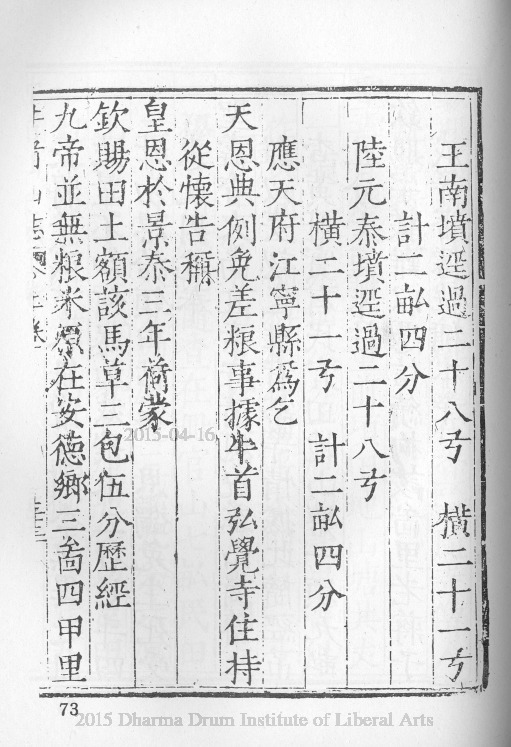 王南墳逕過二十八弓　橫二十一弓
計二畝四分
陸元泰墳逕過二十八弓
橫二十一弓　計二畝四分
應天府江寧縣爲乞
天恩典例免差粮事據牛首弘覺寺住持
從懷告稱
皇恩於景泰三年荷蒙
欽賜田土額該馬草三包伍分歷經
九帝並無粮米順在安德鄉三啚四甲里
2015-04-16
73
2015 Dharma Drum Institute of Liberal Arts